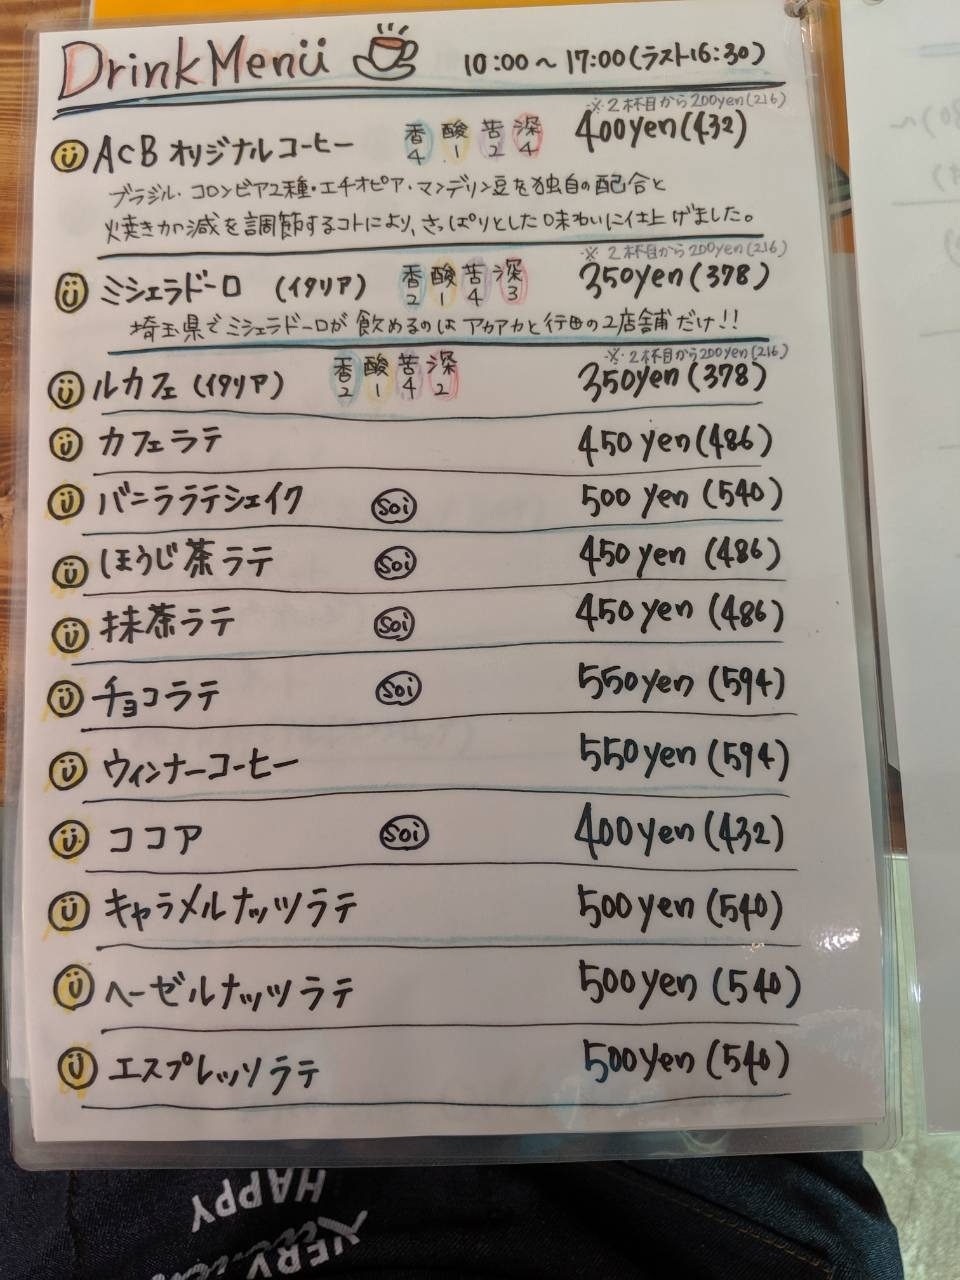 Drink Menu 10:00～17:00(ラスト16:30)
※2杯目から200yen(216)
ACB オリジナルコーヒー 香4 酸1 苦2 深4 400yen(432)
ブラジル・コロンビア2種・エチオピア・マンデリン豆を独自の配合と
焼き加減を調節するコトにより、さっぱりとした味わいに仕上げました。
※2杯目から200yen(216)
ミシェラドーロ (イタリア) 香2 酸1 苦4 深3 350yen(378)
埼玉県でミシェラドーロが飲めるのはアカアカと行田の2店舗だけ!!
※2杯目から200yen(216)
ルカフェ(イタリア) 香2 酸1 苦4 深2 350yen(378)
カフェラテ 450yen(486)
バニララテシェイク soi 500yen(540)
ほうじ茶ラテ soi 450yen(486)
抹茶ラテ soi 450yen(486)
チョコラテ soi 550yen(594)
ウィンナーコーヒー 550yen(594)
ココア soi 400yen(432)
キャラメルナッツラテ 500yen(540)
ヘーゼルナッツラテ 500yen(540)
エスプレッソラテ 500yen(540)
HAPPY
VERY